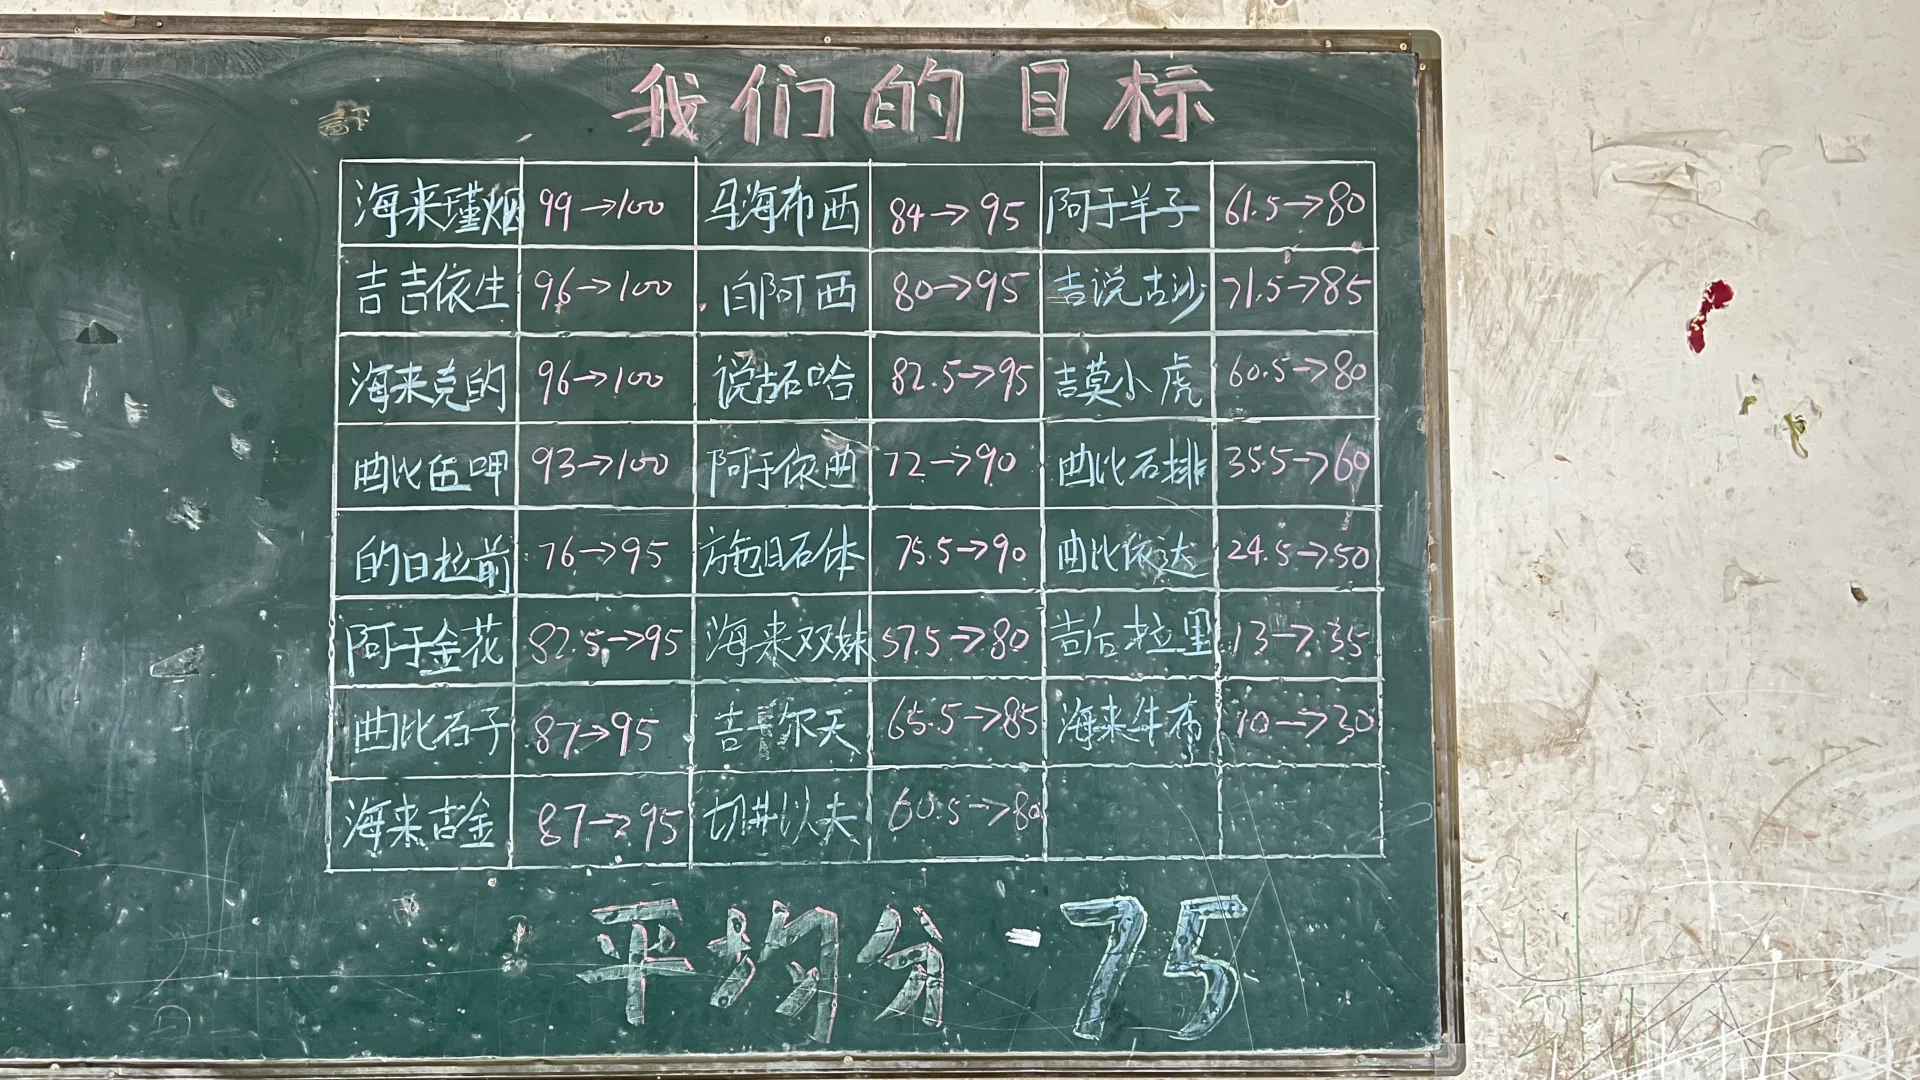 我们的目标
海来瑾烟 99→100 马海布西 84→95 阿于羊子 61.5→80
吉吉依生 96→100 白阿西 80→95 吉说古沙 71.5→85
海来克的 96→100 说古石哈 82.5→95 吉莫小虎 60.5→80
曲比伍呷 93→100 阿于依曲 72→90 曲比石排 35.5→60
的日拉前 76→95 施日石体 75.5→90 曲比依达 24.5→50
阿于金花 82.5→95 海来双妹 57.5→80 吉后拉里 13→35
曲比石子 87→95 吉子尔天 65.5→85 海来牛布 10→30
海来古金 87→95 以夫 60.5→80
平均分 75